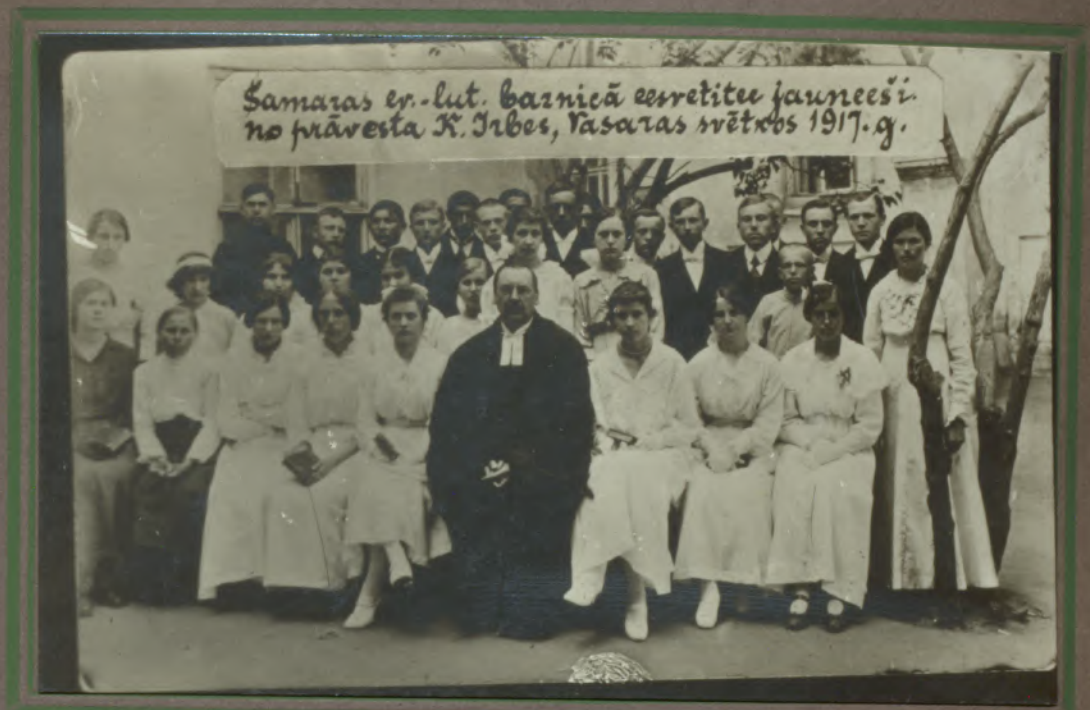 Samaras ev.-lut. baznicā eesvetitee jauneeši
no prāvesta K. Irbes, Vasaras svētkos 1917. g.